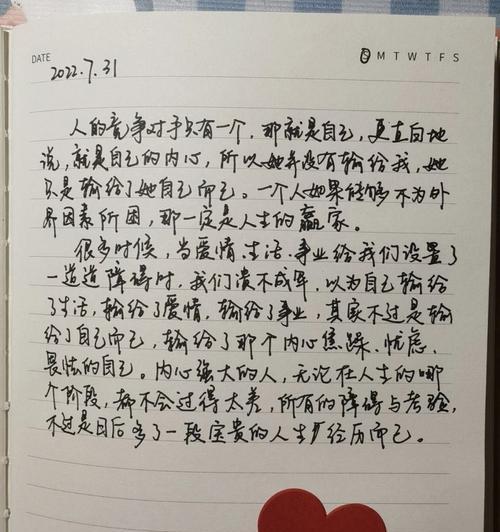 DATE 2022.7.31 S M T W T F S
人的竞争对手只有一个，那就是自己，更直白地
说，就是自己的内心，所以她并没有输给我，她
只是输给了她自己而已。一个人如果能够不为外
界因素所困，那一定是人生的赢家。
很多时候，当爱情、生活、事业给我们设置了
一道道障碍时，我们溃不成军，以为自己输给
了生活，输给了爱情，输给了事业，其家不过是输
给了自己而已，输给了那个内心焦躁、忧虑、
畏怯的自己。内心强大的人，无论在人生的哪
个阶段，都不会过得太差，所有的障碍与考验，
不过是日后多了一段宝贵的人生经历而已。